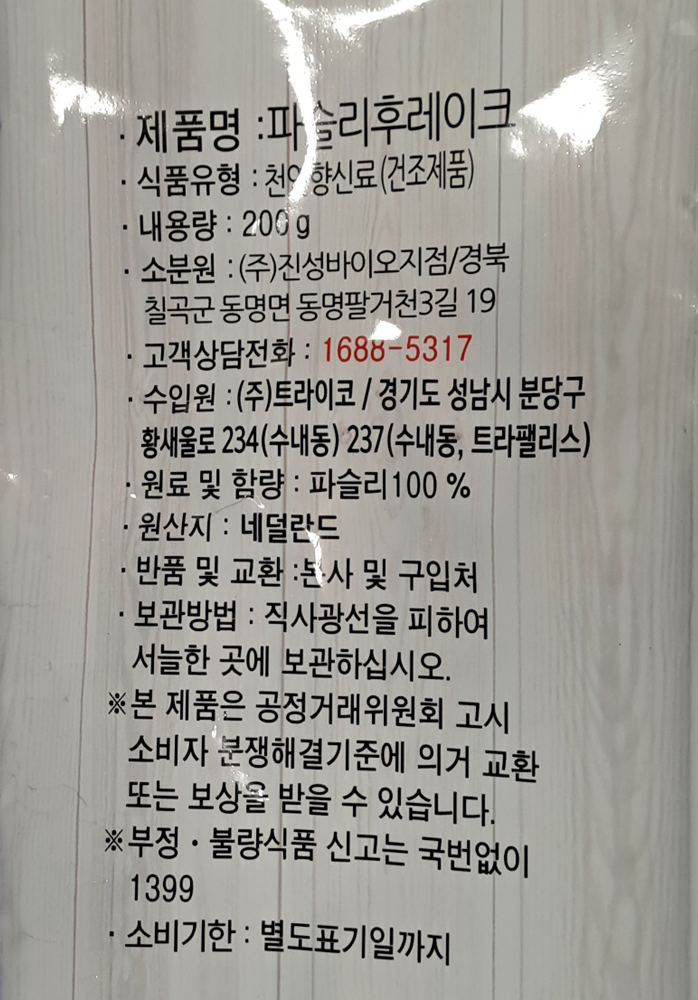 · 제품명 :파슬리후레이크
· 식품유형 : 천연향신료(건조제품)
· 내용량 : 200g
· 소분원 : (주)진성바이오지점/경북
칠곡군 동명면 동명팔거천3길 19
· 고객상담전화 : 1688-5317
· 수입원 : (주)트라이코 / 경기도 성남시 분당구
황새울로 234(수내동) 237(수내동, 트라팰리스)
· 원료 및 함량 : 파슬리100 %
· 원산지 : 네덜란드
· 반품 및 교환 :본사 및 구입처
· 보관방법 : 직사광선을 피하여
서늘한 곳에 보관하십시오.
※본 제품은 공정거래위원회 고시
소비자 분쟁해결기준에 의거 교환
또는 보상을 받을 수 있습니다.
※부정 · 불량식품 신고는 국번없이
1399
· 소비기한 : 별도표기일까지